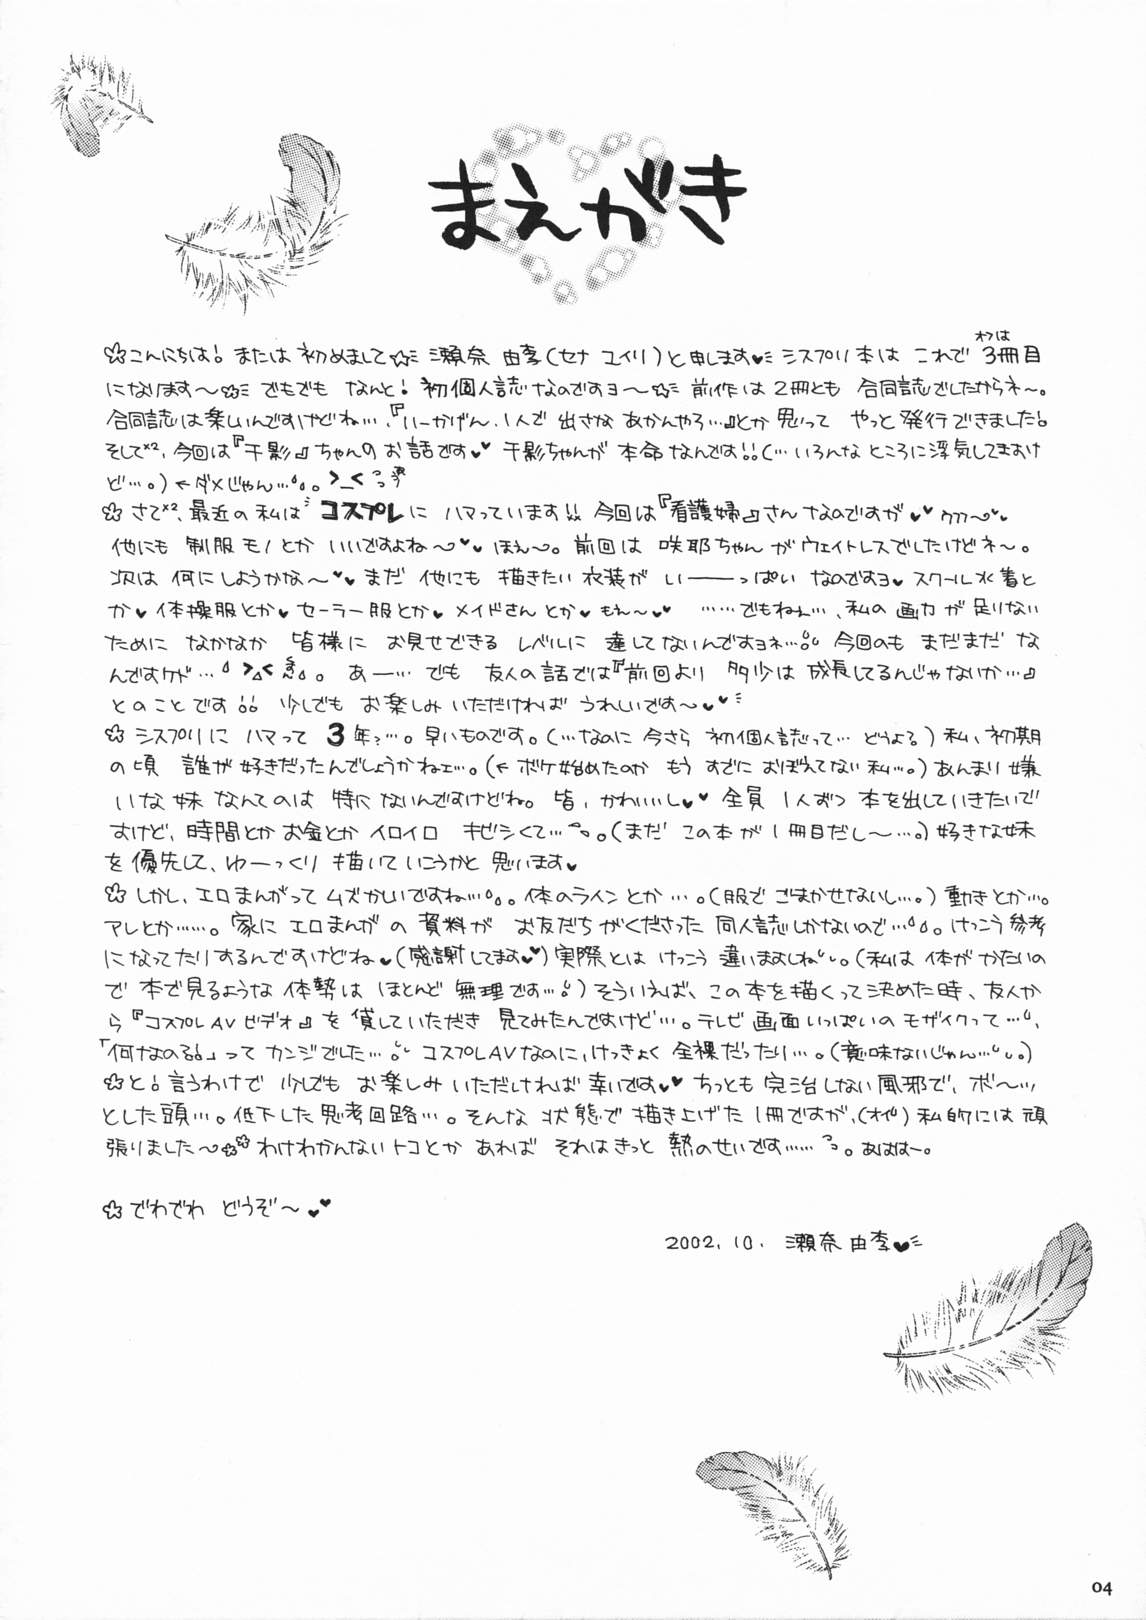 まえがき
☆こんにちは! または 初めまして☆ミ 瀬奈 由李(セナ ユイリ)と申します♥ミ シスプリ本は これで 3冊目
になります〜☆ミ でもでも なんと! 初個人誌なのですヨ〜☆ミ 前作は 2冊とも 合同誌でしたからネ〜。
合同誌は楽しいんですけどね…、『いーかげん、1人で 出さな あかんやろ…』とか思って やっと発行できました!
そして×2、今回は『千影』ちゃんのお話です♥ 千影ちゃんが 本命なんです!!(…いろんなところに浮気してますけ
ど…。)←ダメじゃん…。。 >_<
✿さて×2、最近の私は コスプレに ハマっています!! 今回は『看護婦』さんなのですが♥♥ ウフフ〜♥♥
他にも 制服モノとか いいですよね〜♥♥ ほえ〜。前回は 咲耶ちゃんがウェイトレスでしたけどネ〜。
次は 何にしようかな〜♥♥ まだ 他にも 描きたい衣装が いーーっぱい なのですヨ♥ スクール水着と
か♥体操服とか♥セーラー服とか♥メイドさんとか♥もえ〜♥♥ ……でもねぇ…、私の画力が足りない
ために なかなか 皆様に お見せできる レベルに 達してないんですヨネ…。今回のも まだまだ な
んですケド… >△< 。 あー… でも 友人の話では『前回より 多少は 成長してるんじゃないか…』
とのことです!! 少しでも お楽しみいただければ うれしいです〜♥♥ミ
✿シスプリに ハマって 3年?…。早いものです。(…なのに 今さら 初個人誌って… どうよ?)私、初期
の頃 誰が好きだったんでしょうかねェ…。(←ボケ始めたのか もう すでに おぼえてない私…。)あんまり嫌
いな妹 なんてのは 特にないんですけどね。皆、かわいいし♥♥ 全員 1人ずつ 本を出していきたいで
すけど、時間とかお金とかイロイロ キビシくて…。(まだ この本が1冊目だし〜…。)好きな妹
を優先して、ゆーっくり 描いていこうかと 思います♥
✿しかし、エロまんがって ムズかしいですね…。。体のラインとか…。(服で ごまかせないし…。)動きとか…。
アレとか……。家に エロまんが の 資料が お友だちがくださった 同人誌しかないので…。けっこう参考
になってたりするんですけどね♥(感謝してます♥)実際とは けっこう 違いますしね〜。(私は 体が かたいの
で 本で見るような 体勢は ほとんど 無理です…!)そういえば、この本を描くって決めた時、友人か
ら『コスプレAVビデオ』を 貸していただき 見てみたんですけど…。テレビ 画面いっぱいのモザイクって…、
「何なの?!」って カンジでした… コスプレAVなのに、けっきょく 全裸だったり…。(意味ないじゃん…。)
✿と!言うわけで 少しでも お楽しみいただければ幸いです♥♥ ちっとも 完治しない風邪で、ボ〜ッ
とした頭…。低下した思考回路…。そんな 状態で 描き上げた 1冊ですが、(オイ)私的には 頑
張りました〜✿✿わけわかんないトコとか あれば それはきっと 熱のせいです……。あはは−。
✿でわでわ どうぞ〜♥♥
2002.10. 瀬奈 由李♥ミ
04